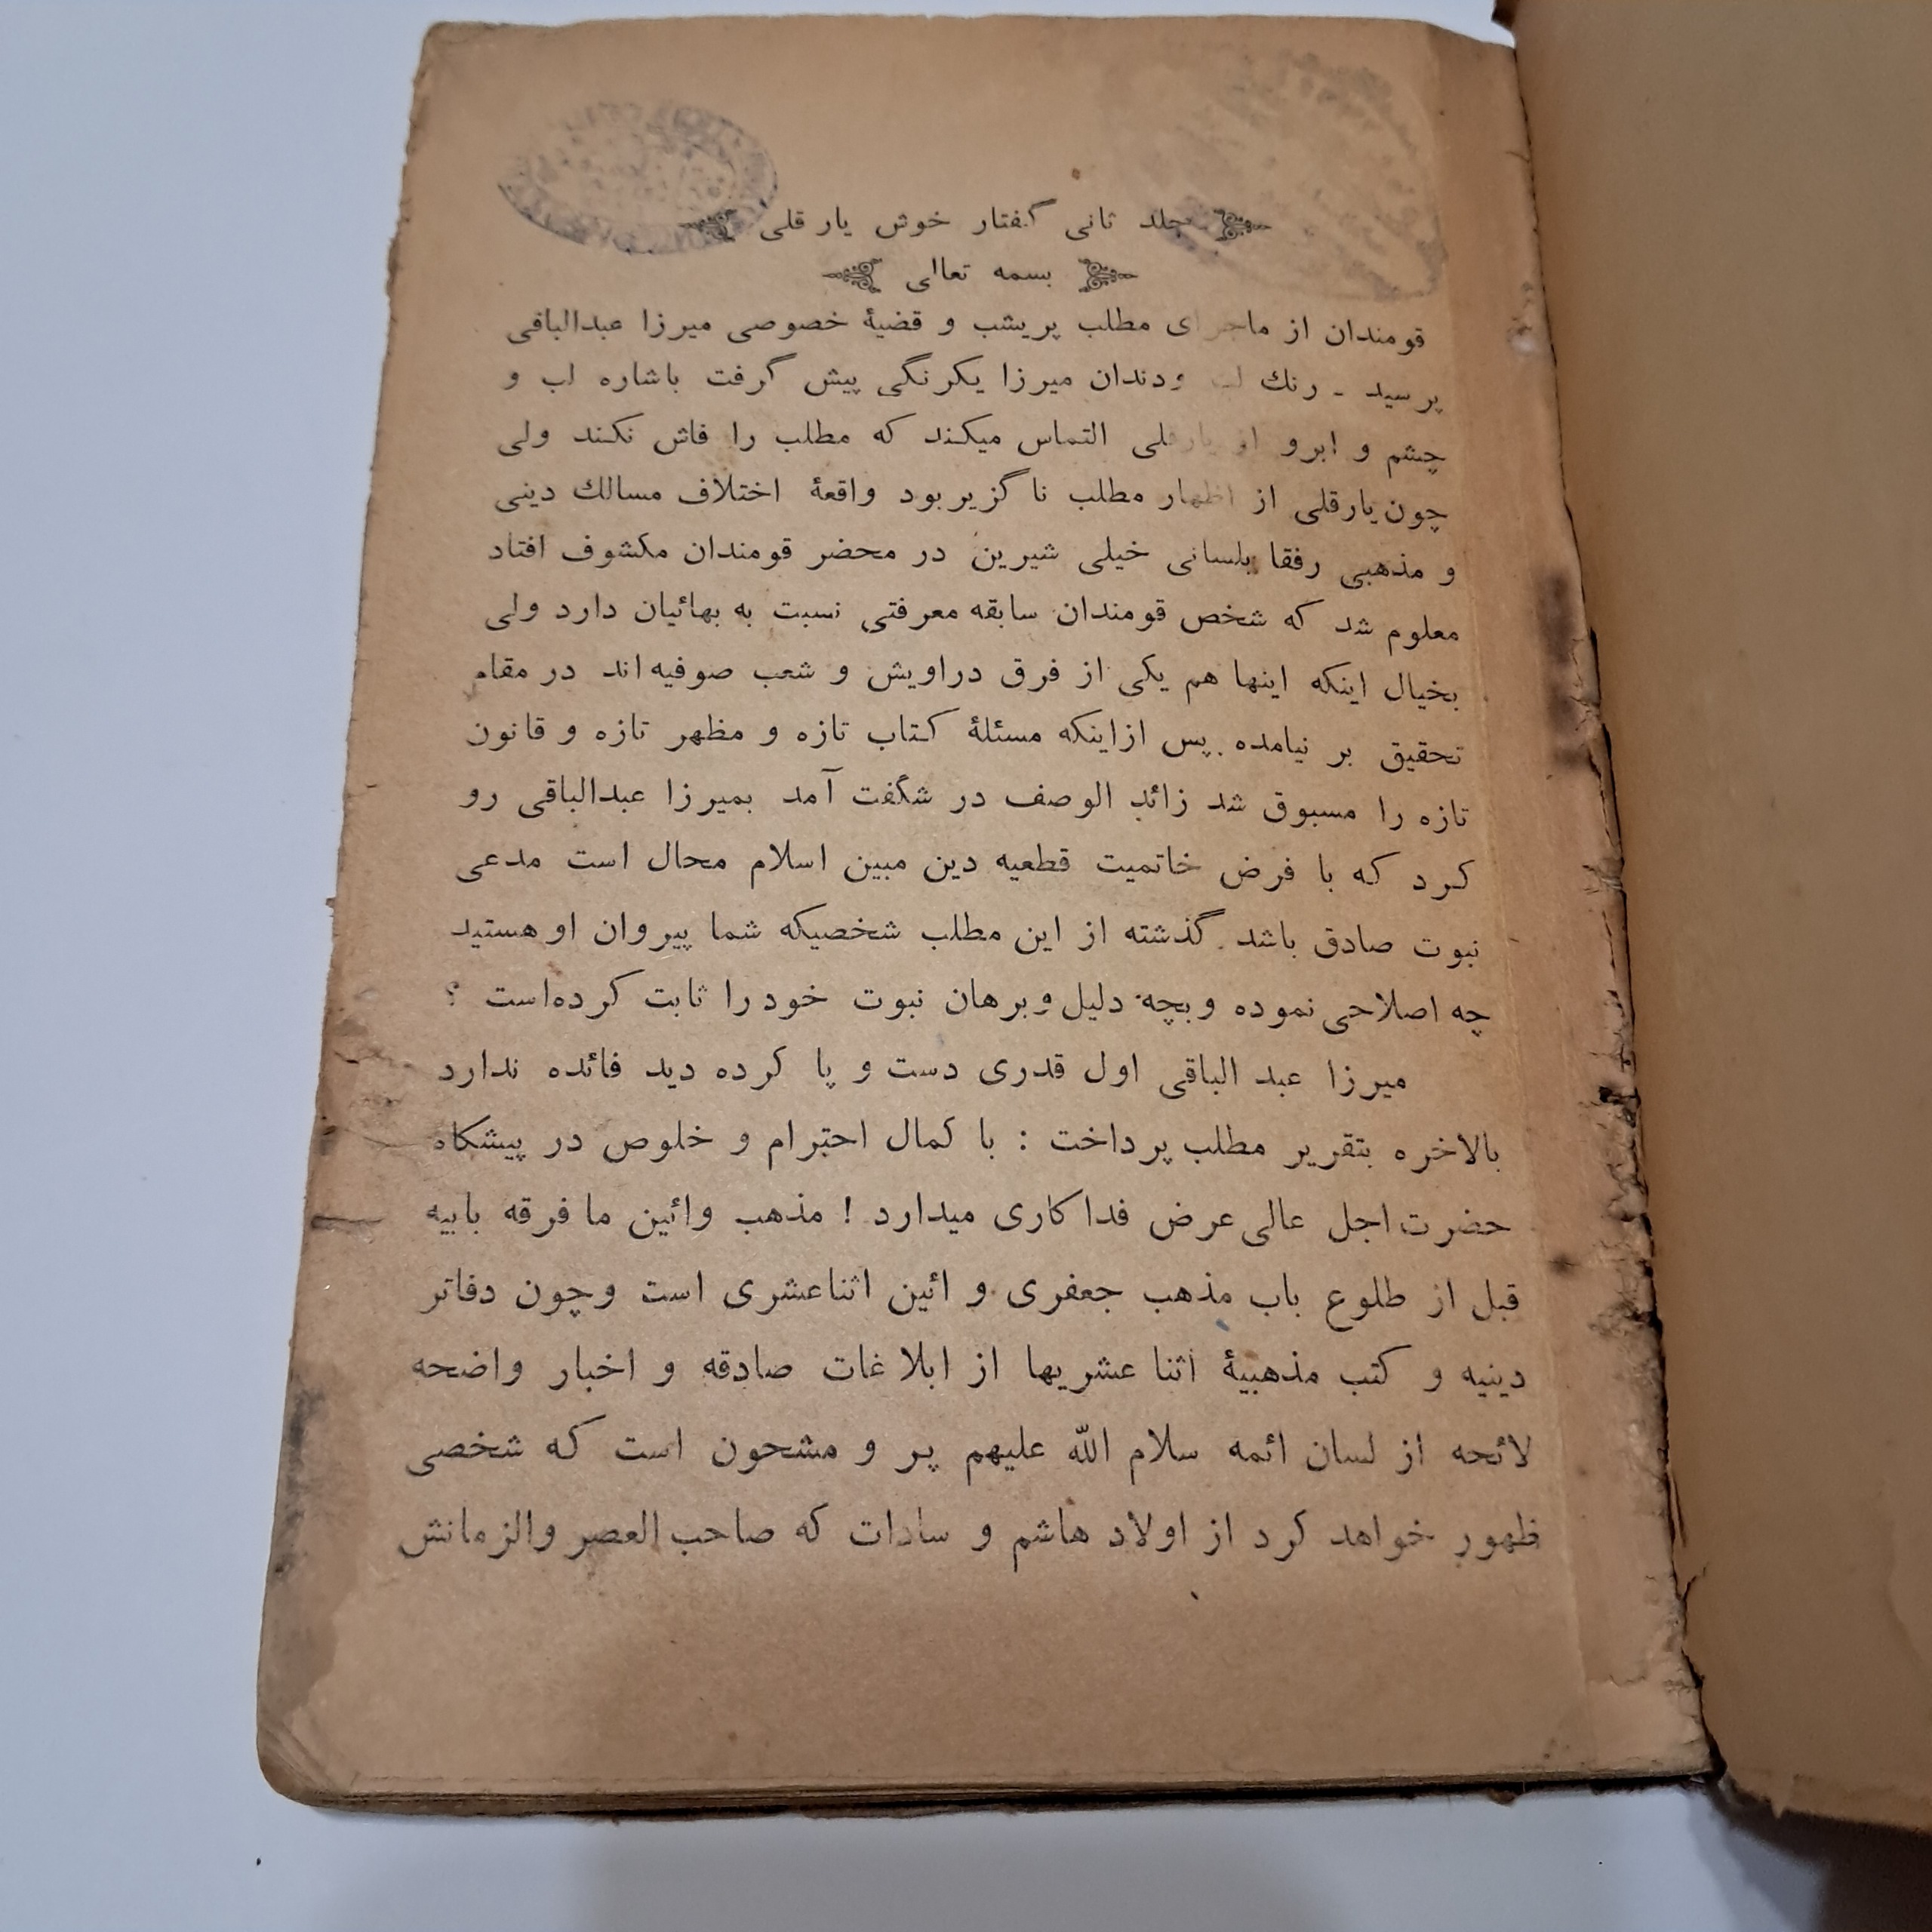 جلد ثانی گفتار خوش یار قلی
بسمه تعالی
قومندان از ماجرای مطلب پریشب و قضیهٔ خصوصی میرزا عبدالباقی
پرسید ـ رنك لب ودندان میرزا یکرنگی پیش گرفت باشاره لب و
چشم و ابرو از یارقلی التماس میکند که مطلب را فاش نکند ولی
چون یارقلی از اظهار مطلب ناگزیر بود واقعهٔ اختلاف مسالك دینی
و مذهبی رفقا بلسانی خیلی شیرین در محضر قومندان مکشوف افتاد
معلوم شد که شخص قومندان سابقه معرفتی نسبت به بهائیان دارد ولی
بخیال اینکه اینها هم یکی از فرق دراویش و شعب صوفیه اند در مقام
تحقیق بر نیامده . پس ازاینکه مسئلهٔ کتاب تازه و مظهر تازه و قانون
تازه را مسبوق شد زائد الوصف در شگفت آمد بمیرزا عبدالباقی رو
کرد که با فرض خاتمیت قطعیه دین مبین اسلام محال است مدعی
نبوت صادق باشد . گذشته از این مطلب شخصیکه شما پیروان او هستید
چه اصلاحی نموده وبچه دلیل وبرهان نبوت خود را ثابت کرده‌است ؟
میرزا عبد الباقی اول قدری دست و پا کرده دید فائده ندارد
بالاخره بتقریر مطلب پرداخت : با کمال احترام و خلوص در پیشکاه
حضرت اجل عالی عرض فداکاری میدارد ! مذهب وائین ما فرقه بابیه
قبل از طلوع باب مذهب جعفری و ائین اثناعشری است وچون دفاتر
دینیه و کتب مذهبیهٔ اثنا عشریها از ابلاغات صادقه و اخبار واضحه
لائحه از لسان ائمه سلام الله علیهم پر و مشحون است که شخصی
ظهور خواهد کرد از اولاد هاشم و سادات که صاحب العصر والزمانش